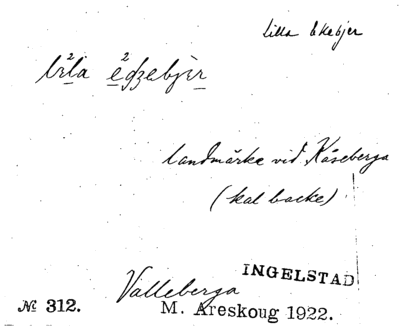 Lilla Ekebjer
landmärke vid Kåseberga
(kal backe)
INGELSTAD
Valleberga
№ 312.
M. Areskoug 1922.